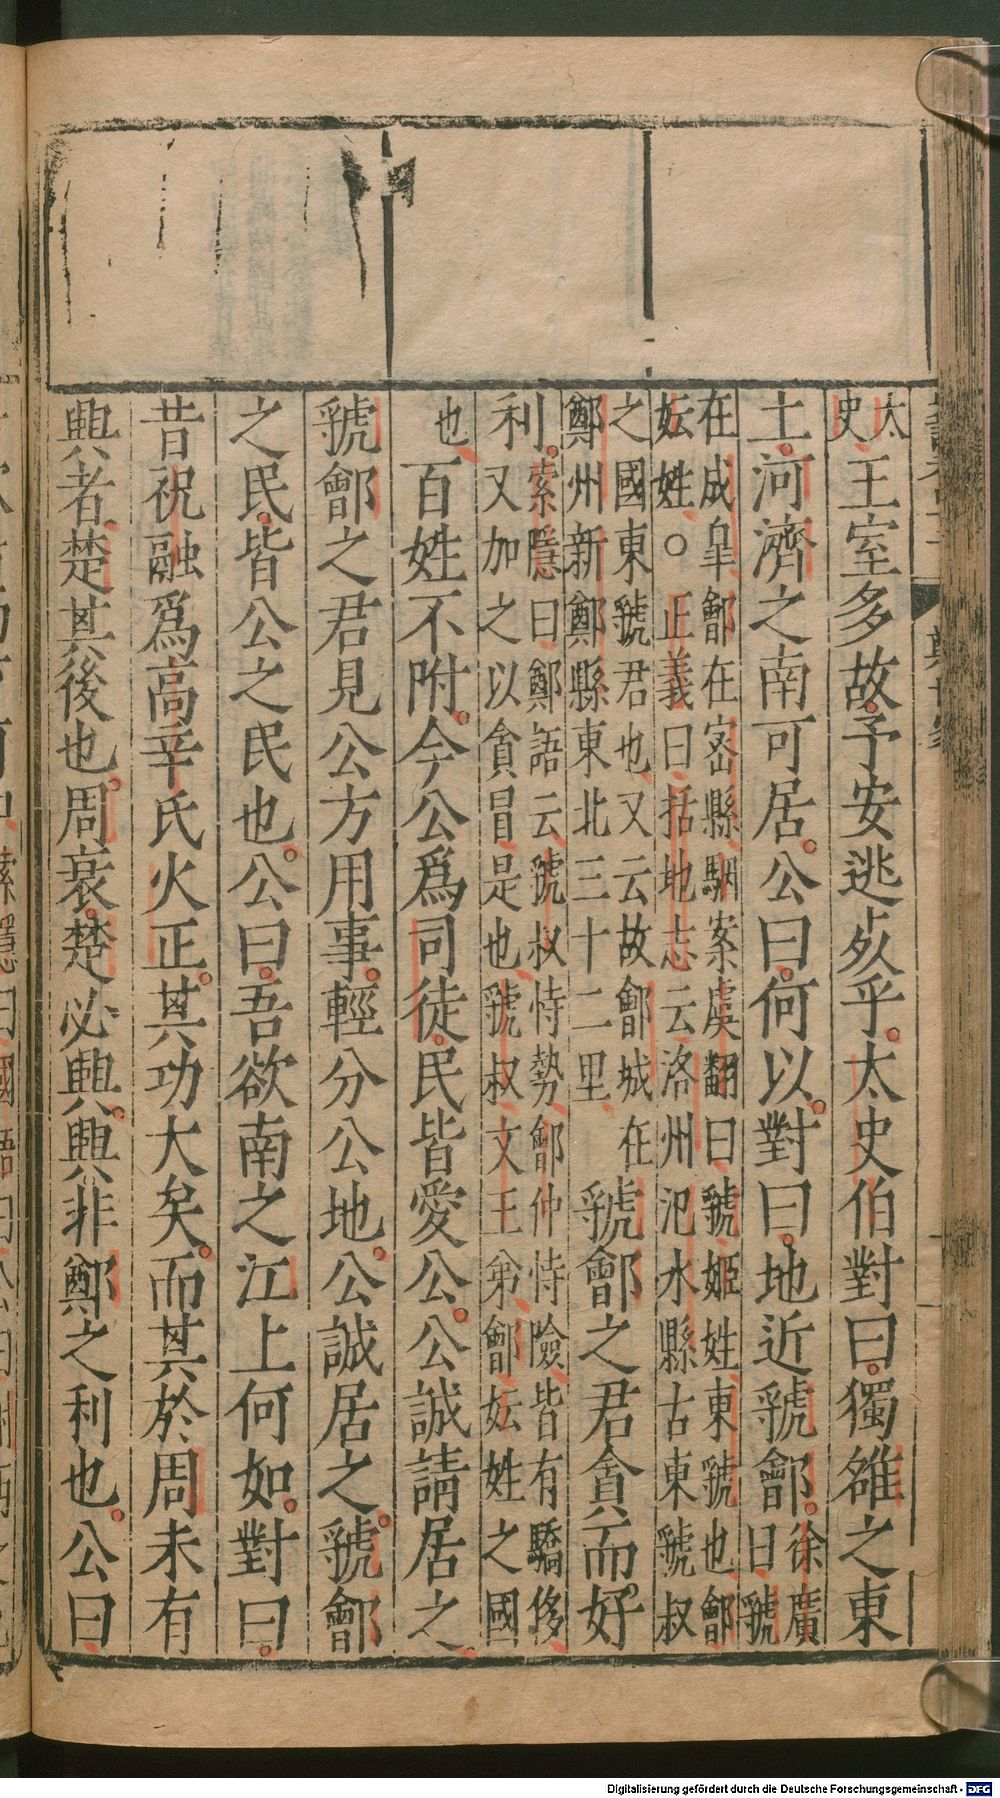 太史王室多故。予安逃死乎。太史伯對曰。獨雒之東
土。河濟之南可居。公曰。何以。對曰。地近虢鄶。徐廣曰虢
在成皐鄶在宻縣駰案虞翻曰虢姬姓東虢也鄶
妘姓○正義曰括地志云洛州氾水縣古東虢叔
之國東虢君也又云故鄶城在
鄭州新鄭縣東北三十二里
虢鄶之君貪而好
利。索隱曰鄭語云虢叔恃勢鄶仲恃險皆有驕侈
又加之以貪冒是也虢叔文王弟鄶妘姓之國
也百姓不附。今公爲司徒。民皆愛公。公誠請居之。
虢鄶之君見公方用事。輕分公地。公誠居之。虢鄶
之民。皆公之民也。公曰。吾欲南之江上何如。對曰。
昔祝融爲高辛氏火正。其功大矣。而其於周未有
興者。楚其後也。周衰。楚必興。興非鄭之利也。公曰
Digitalisierung gefördert durch die Deutsche Forschungsgemeinschaft - DFG